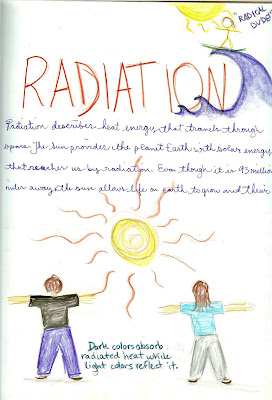 "RADICAL
DUDE!"
RADIATION
Radiation describes heat energy that travels through
space. The Sun provides the planet Earth with solar energy
that reaches us by radiation. Even though it is 93 million
miles away, the sun allows life on earth to grow and thrive
Dark colors absorb
radiated heat while
light colors reflect it.